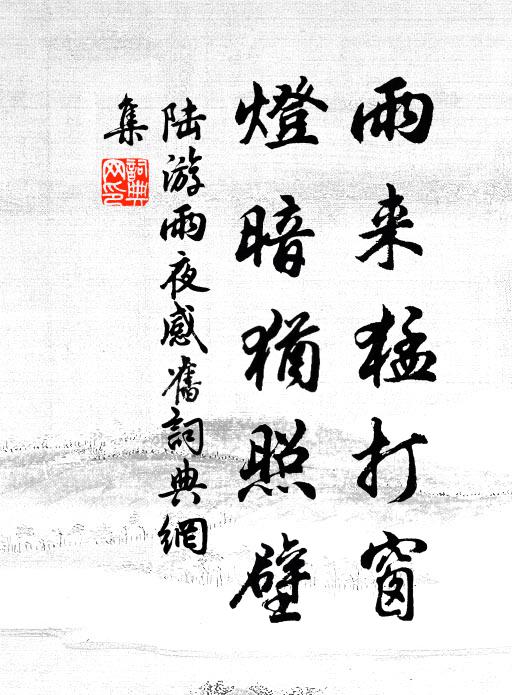 雨来猛打窗
燈暗猶照壁
陆游雨夜感舊詞典網
集
詞典网印